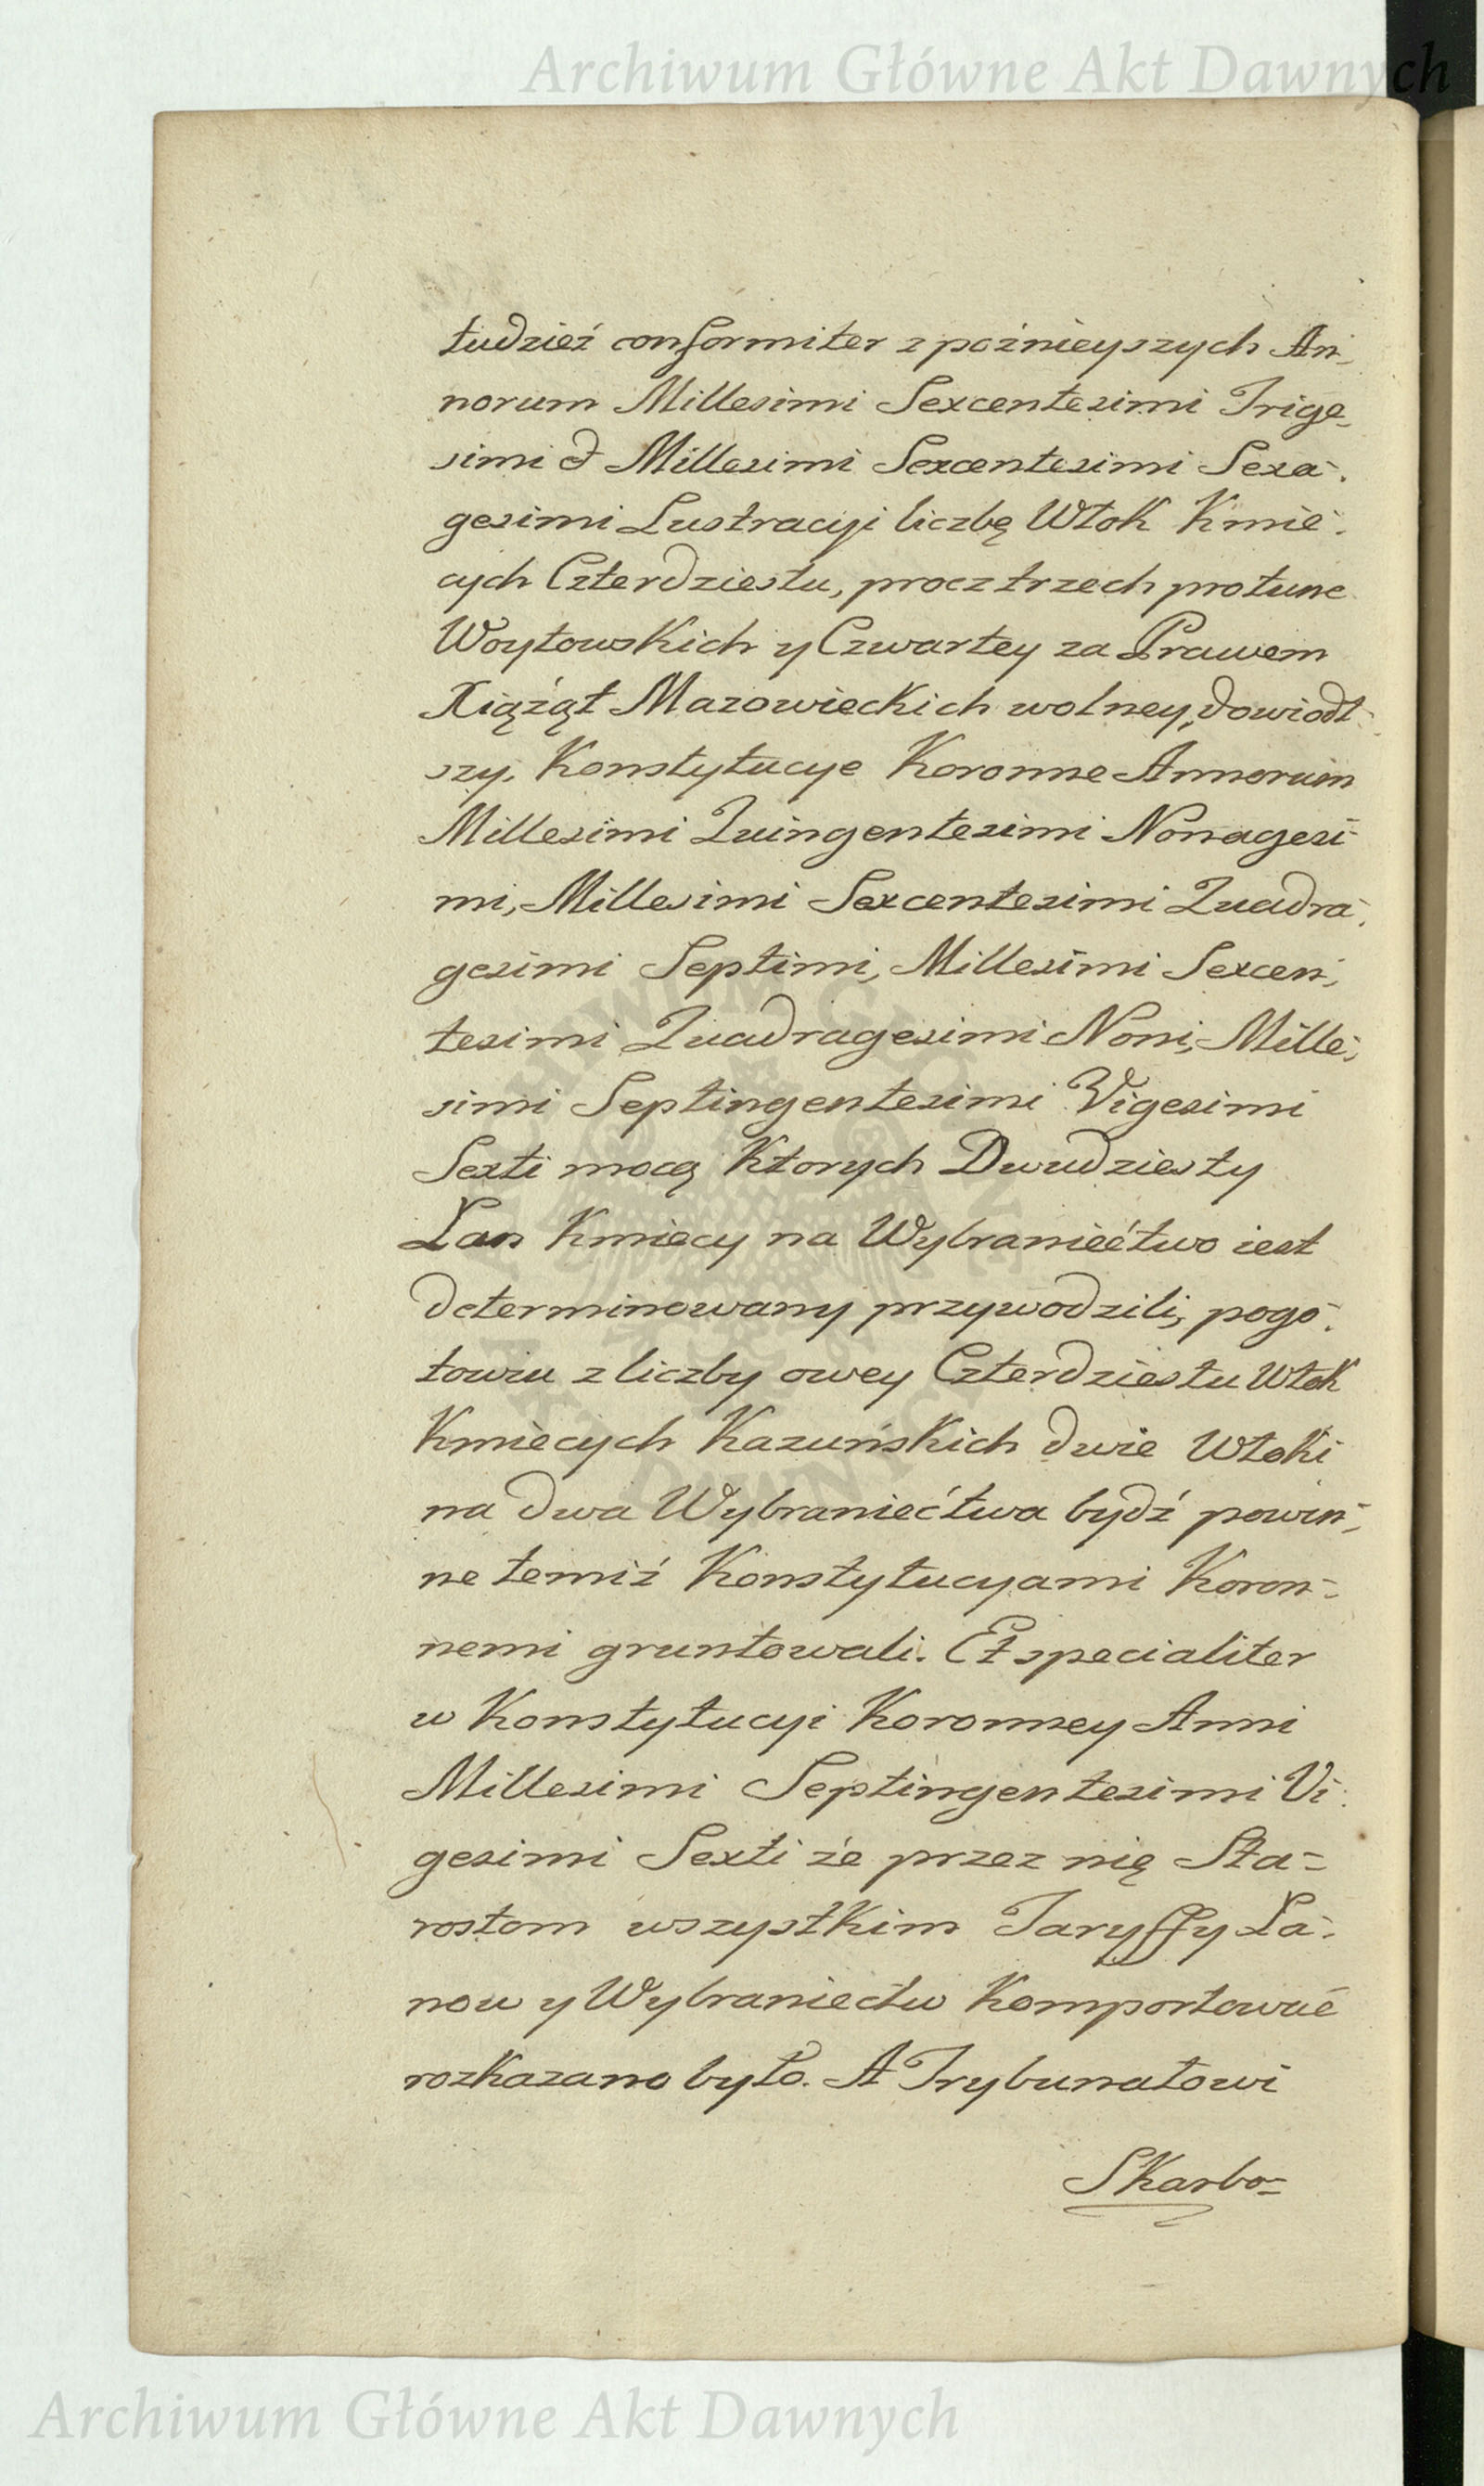 Archiwum Główne Akt Dawnych
tudzież conformiter z pozнieyszych An-
norum Millesimi Sexcentesimi Trige-
simi & Millesimi Sexcentesimi Sexa-
gesimi Lustracyi liczbę Włok Kmie-
cych Czterdziestu, procz trzech protunc
Woytowskich y Czwartey za Prawem
Xiążąt Mazowieckich wolney, dowiodł-
szy, Konstytucye Koronne Annorum
Millesimi Quingentesimi Nonagesi-
mi, Millesimi Sexcentesimi Quadra-
gesimi Septimi, Millesimi Sexcen-
tesimi Quadragesimi Noni, Mille-
simi Septingentesimi Vigesimi
Sexti mocą Ktorych Dwudziesty
Łan Kmiecy na Wybraniectwo iest
determinowany przywodzili, pogo-
towiu z liczby owey Czterdziestu Włok
Kmiecych Kazuńskich dwie Włoki
na dwa Wybraniectwa bydź powin-
ne temiż Konstytucyami Koron-
nemi gruntowali. Et specialiter
w Konstytucyi Koronney Anni
Millesimi Septingentesimi Vi-
gesimi Sexti że przez nię Sta-
rostom wszystkim Taryffy Ła-
now y Wybraniectw Komportować
rozkazano było. A Trybunałowi
Skarbo-
ARCHIWUM GŁÓWNE AKT DAWNYCH
Archiwum Główne Akt Dawnych